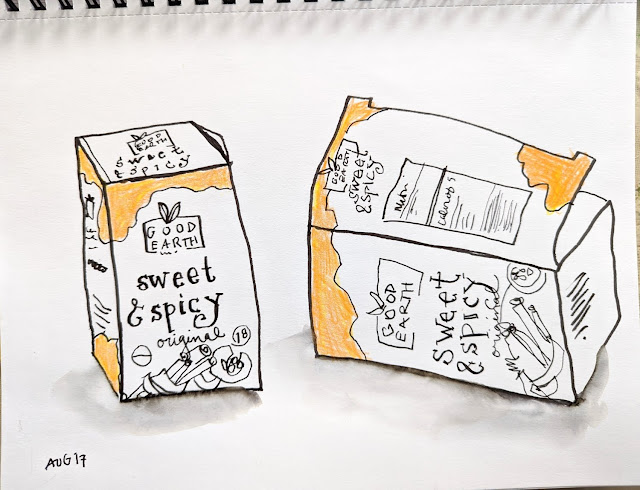 GOOD
EARTH
sweet
& spicy
GOOD
EARTH
sweet
& spicy
original
18
GOOD
EARTH
sweet
& spicy
calories
GOOD
EARTH
sweet
& spicy
original
AUG 17